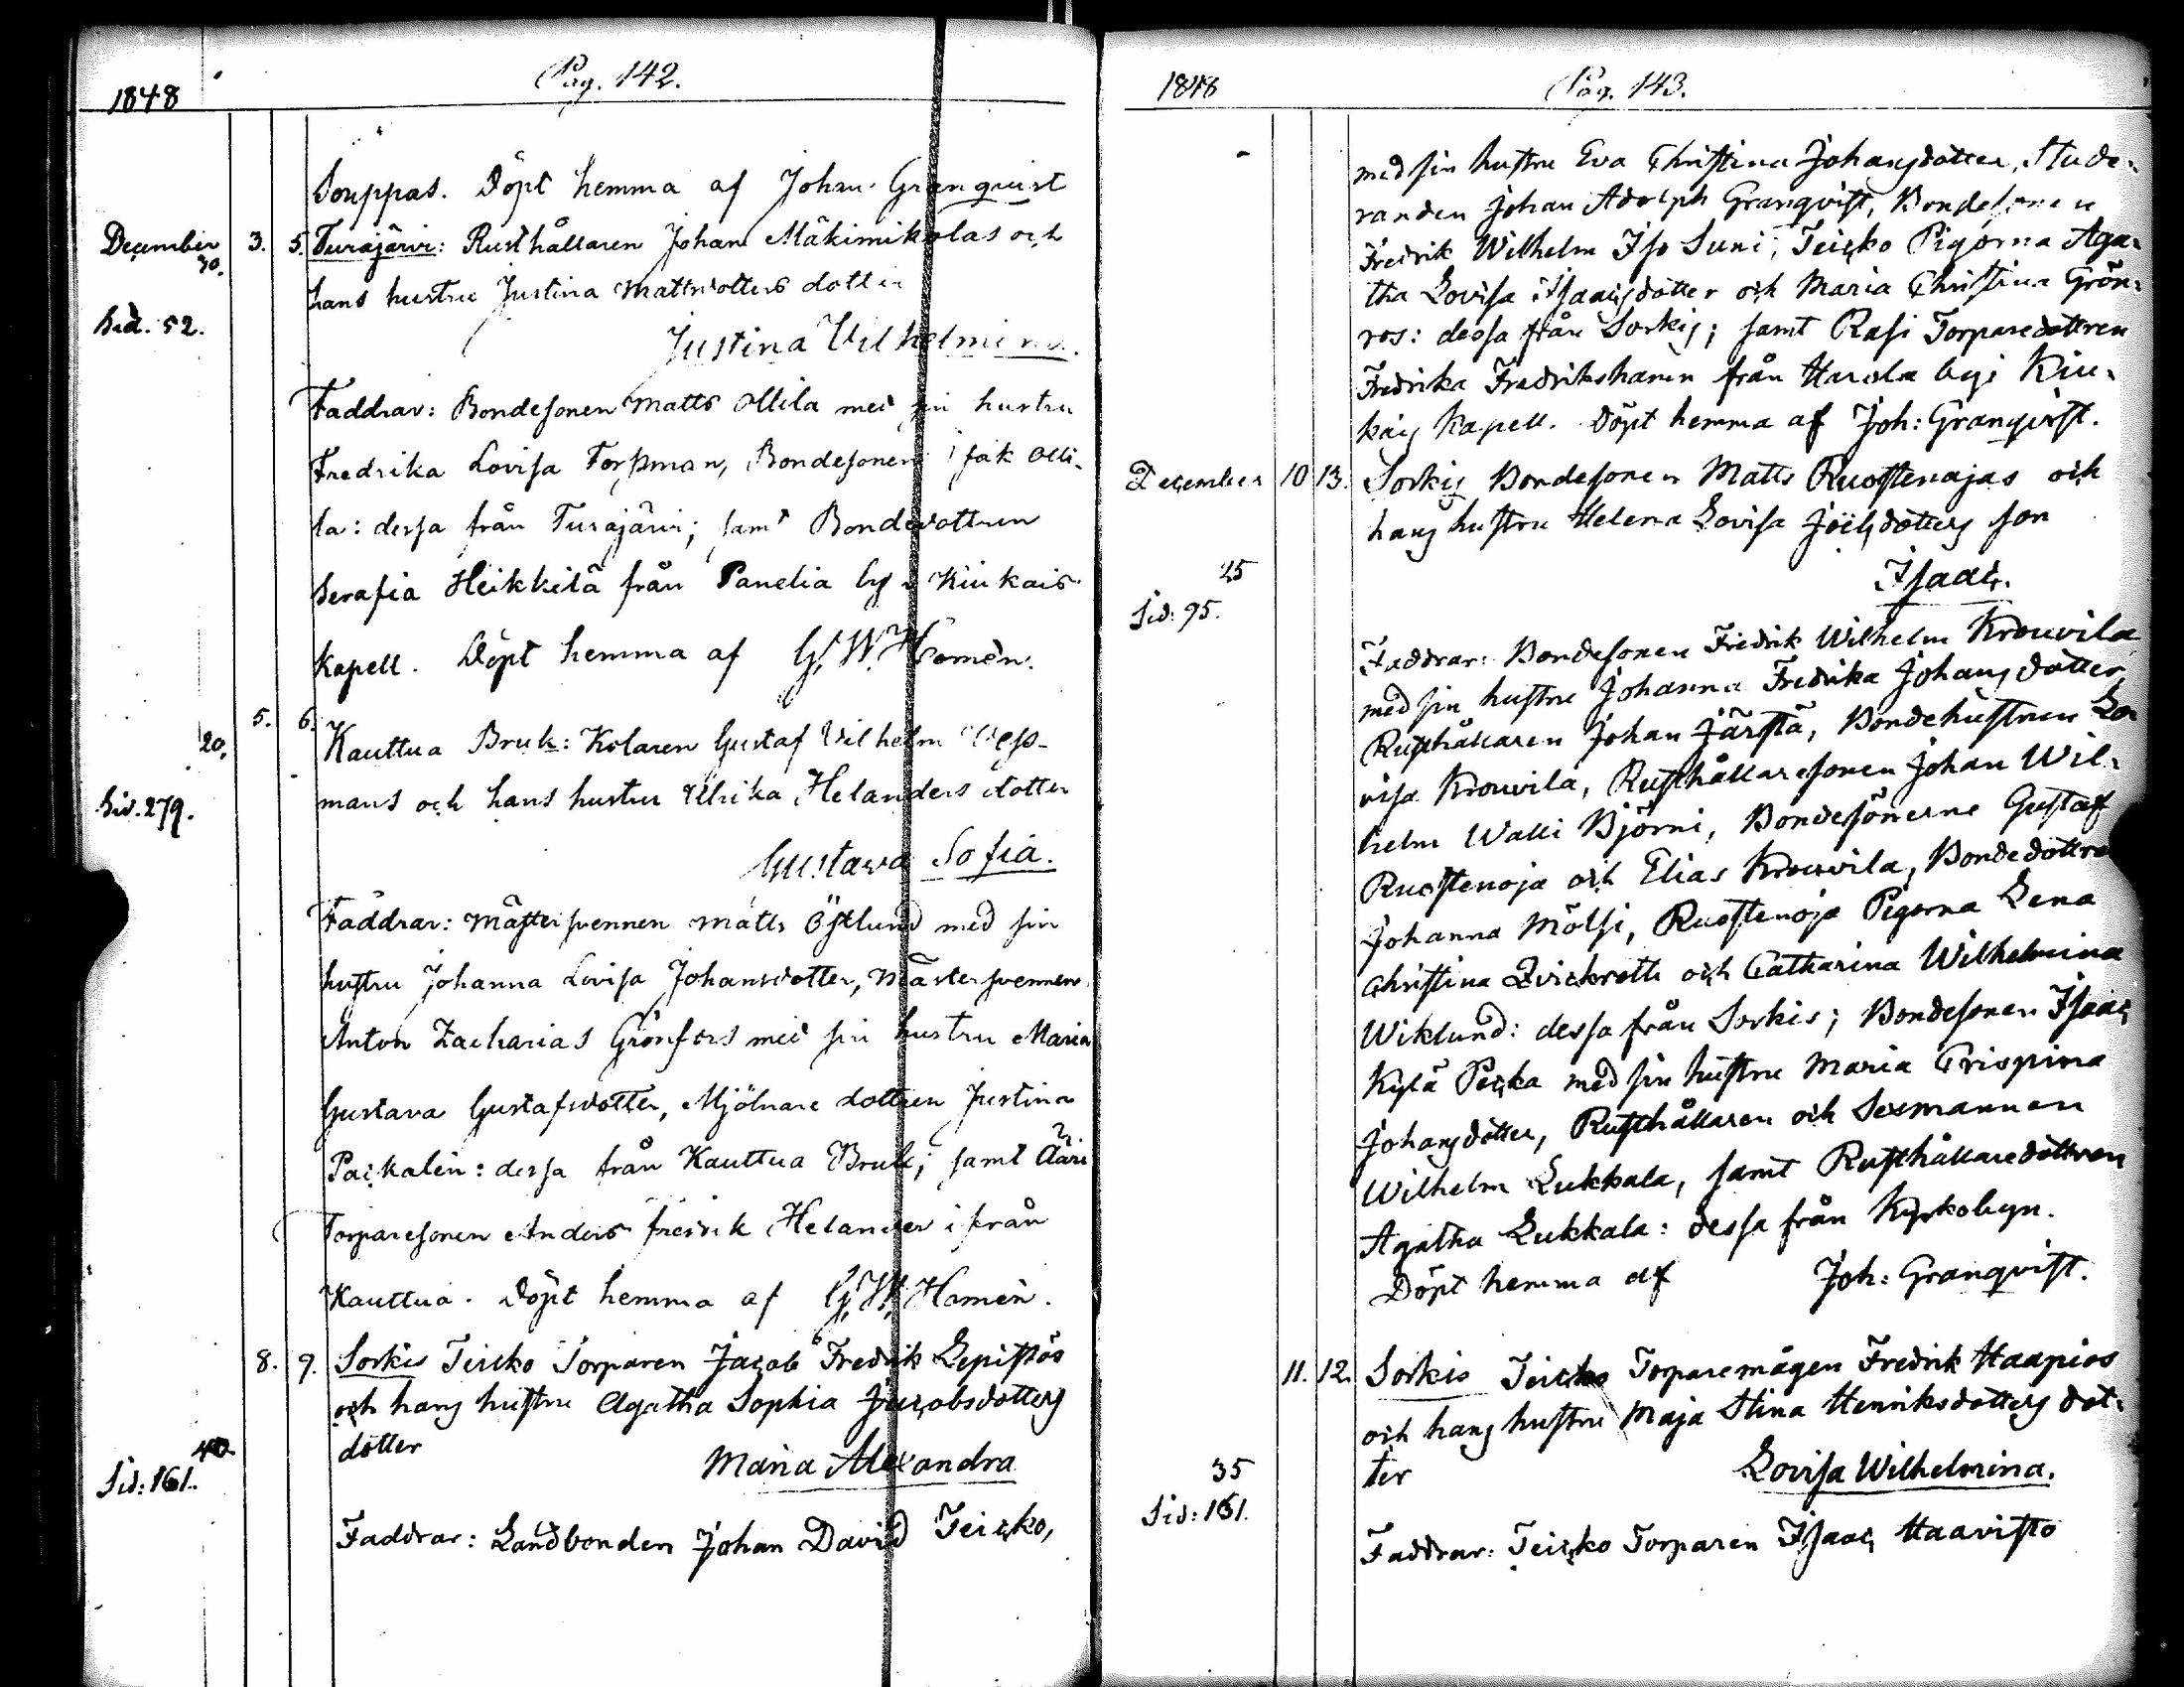 1848
Pag. 142.
Souppas. Döpt hemma af Johan Granquist
December 3. 5. Turajärvi: Rusthållaren Johan Mäkimikolas och
30.
hans hustru Justina Mattsdotters dotter
Sid. 52.
Justina Vilhelmina.
Faddrar: Bondesonen Matts Ollila med sin hustru
Fredrika Lovisa Forssman, Bondesonen Isak Olli-
la: dessa från Turajärvi; samt Bondedottren
Serafia Heikkilä från Panelia by i Kiukais
Kapell. Döpt hemma af G. W. Homèn.
5. 6. Kauttua Bruk: Kolaren Gustaf Vilhelm
20.
mans och hans hustru Ulrika Helanders dotter
Sid. 279.
Gustava Sofia.
Faddrar: Mästersvennen Matts Östlund med sin
hustru Johanna Lovisa Johansdotter, Mästersvennen
Anton Zacharias Grönfors med sin hustru Maria
Gustava Gustafsdotter, Mjölnare dottren Justina
Packalèn: dessa från Kauttua Bruk; samt Ääri
Torparesonen Anders Fredrik Helander ifrån
Kauttua. Döpt hemma af G. W. Homèn.
8. 9. Sorkis Teicko Torparen Jacob Fredrik Lepistös
och hans hustru Agatha Sophia Jacobsdotters
dotter
40.
Maria Alexandra
Sid: 161.
Faddrar: Landbonden Johan David Teicko,
1848
Pag. 143.
med sin hustru Eva Christina Johansdotter, Stude-
randen Johan Adolph Granqvist, Bondesonen
Fredrik Wilhelm Iso Suni, Teicko Pigorna Aga-
tha Lovisa Isaacsdotter och Maria Christina Grön-
ros: dessa från Sorkis; samt Rasi Torparedottren
Fredrika Fredrikshanen från Harola by i Kiu-
kais Kapell. Döpt hemma af Joh: Granqvist.
December 10 13. Sorkis Bondesonen Matts Ruostenojas och
hans hustru Helena Lovisa Joëlsdotters son
25
Isaac.
Sid: 95.
Faddrar: Bondesonen Fredrik Wilhelm Krouvila
med sin hustru Johanna Fredrika Johansdotter,
Rusthållaren Johan Järstä, Bondehustrun Lo-
visa Krouvila, Rusthållaresonen Johan Wil-
helm Walli Björni, Bondesönerne Gustaf
Ruostenoja och Elias Krouvila, Bondedottren
Johanna Mölsi, Ruostenoja Pigorna Lena
Christina Qvickrott och Catharina Wilhelmina
Wiklund: dessa från Sorkis; Bondesonen Isaac
Kylä Pecka med sin hustru Maria Crispina
Johansdotter, Rusthållaren och Sexmannen
Wilhelm Lukkala, samt Rusthållaredottren
Agatha Lukkala: dessa från Kyrkobyn.
Döpt hemma af Joh: Granqvist.
11. 12. Sorkis Teicko Torparemågen Fredrik Haapios
och hans hustru Maja Stina Henriksdotters dot-
ter Lovisa Wilhelmina.
35
Sid: 161.
Faddrar: Teicko Torparen Isaac Haavisto